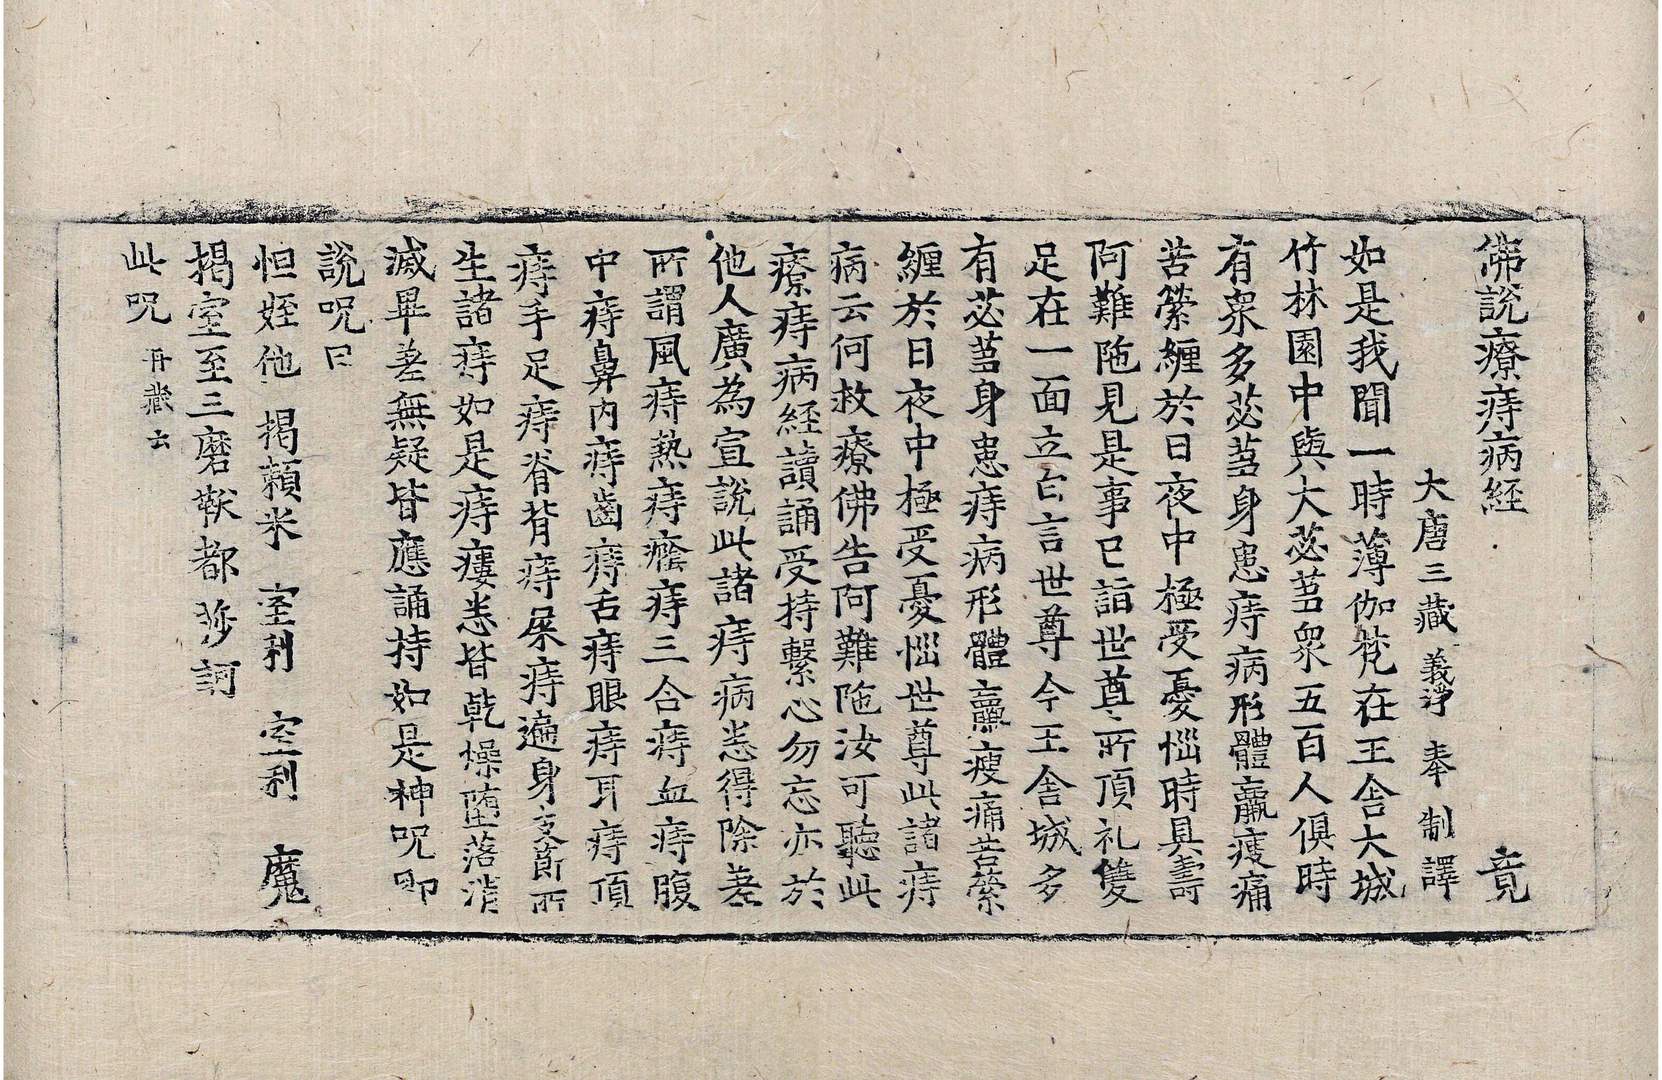 佛說療痔病経 竟
大唐三藏 義淨 奉 制譯
如是我聞一時薄伽梵在王舍大城
竹林園中與大苾芻衆五百人俱時
有衆多苾芻身患痔病形體羸瘦痛
苦縈纏於日夜中極受憂惱時具壽
阿難陁見是事已詣世尊所頂礼雙
足在一面立白言世尊今王舍城多
有苾芻身患痔病形體羸瘦痛苦縈
纏於日夜中極受憂惱世尊此諸痔
病云何救療佛告阿難陁汝可聽此
療痔病経讀誦受持繫心勿忘亦於
他人廣為宣說此諸痔病悉得除差
所謂風痔熱痔癊痔三合痔血痔腹
中痔鼻內痔齒痔舌痔眼痔耳痔頂
痔手足痔脊背痔屎痔遍身支節所
生諸痔如是痔瘻悉皆乾燥墮落消
滅畢差無疑皆應誦持如是神呪即
說呪曰
怛姪他 揭頼米 室利 室利 魔
揭室至三磨䩭都 莎訶
此呪 丹藏云